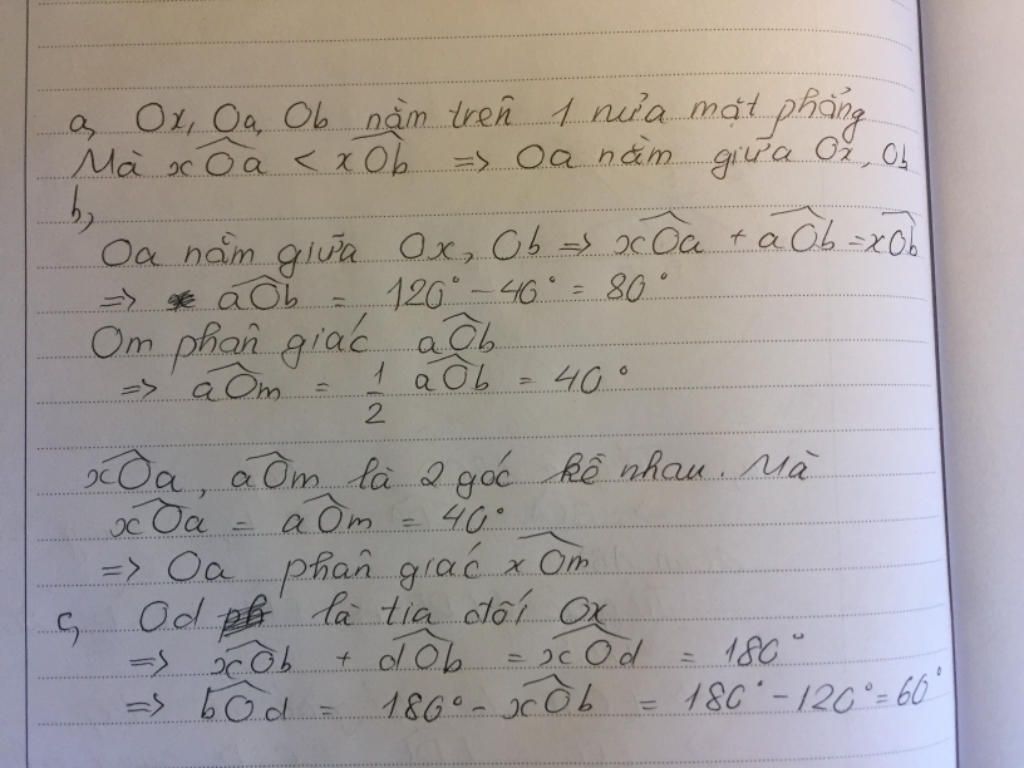 a, Ox, Oa, Ob nằm trên 1 nửa mặt phẳng
Mà xÔa < xÔb => Oa nằm giữa Ox, Ob
b,
Oa nằm giữa Ox, Ob => xÔa + aÔb = xÔb
=> aÔb = 120° - 40° = 80°
Om phân giác aÔb
=> aÔm = 1/2 aÔb = 40°
xÔa, aÔm là 2 góc kề nhau. Mà
xÔa = aÔm = 40°
=> Oa phân giác xÔm
c, Od là tia đối Ox
=> xÔb + dÔb = xÔd = 180°
=> bÔd = 180° - xÔb = 180° - 120° = 60°